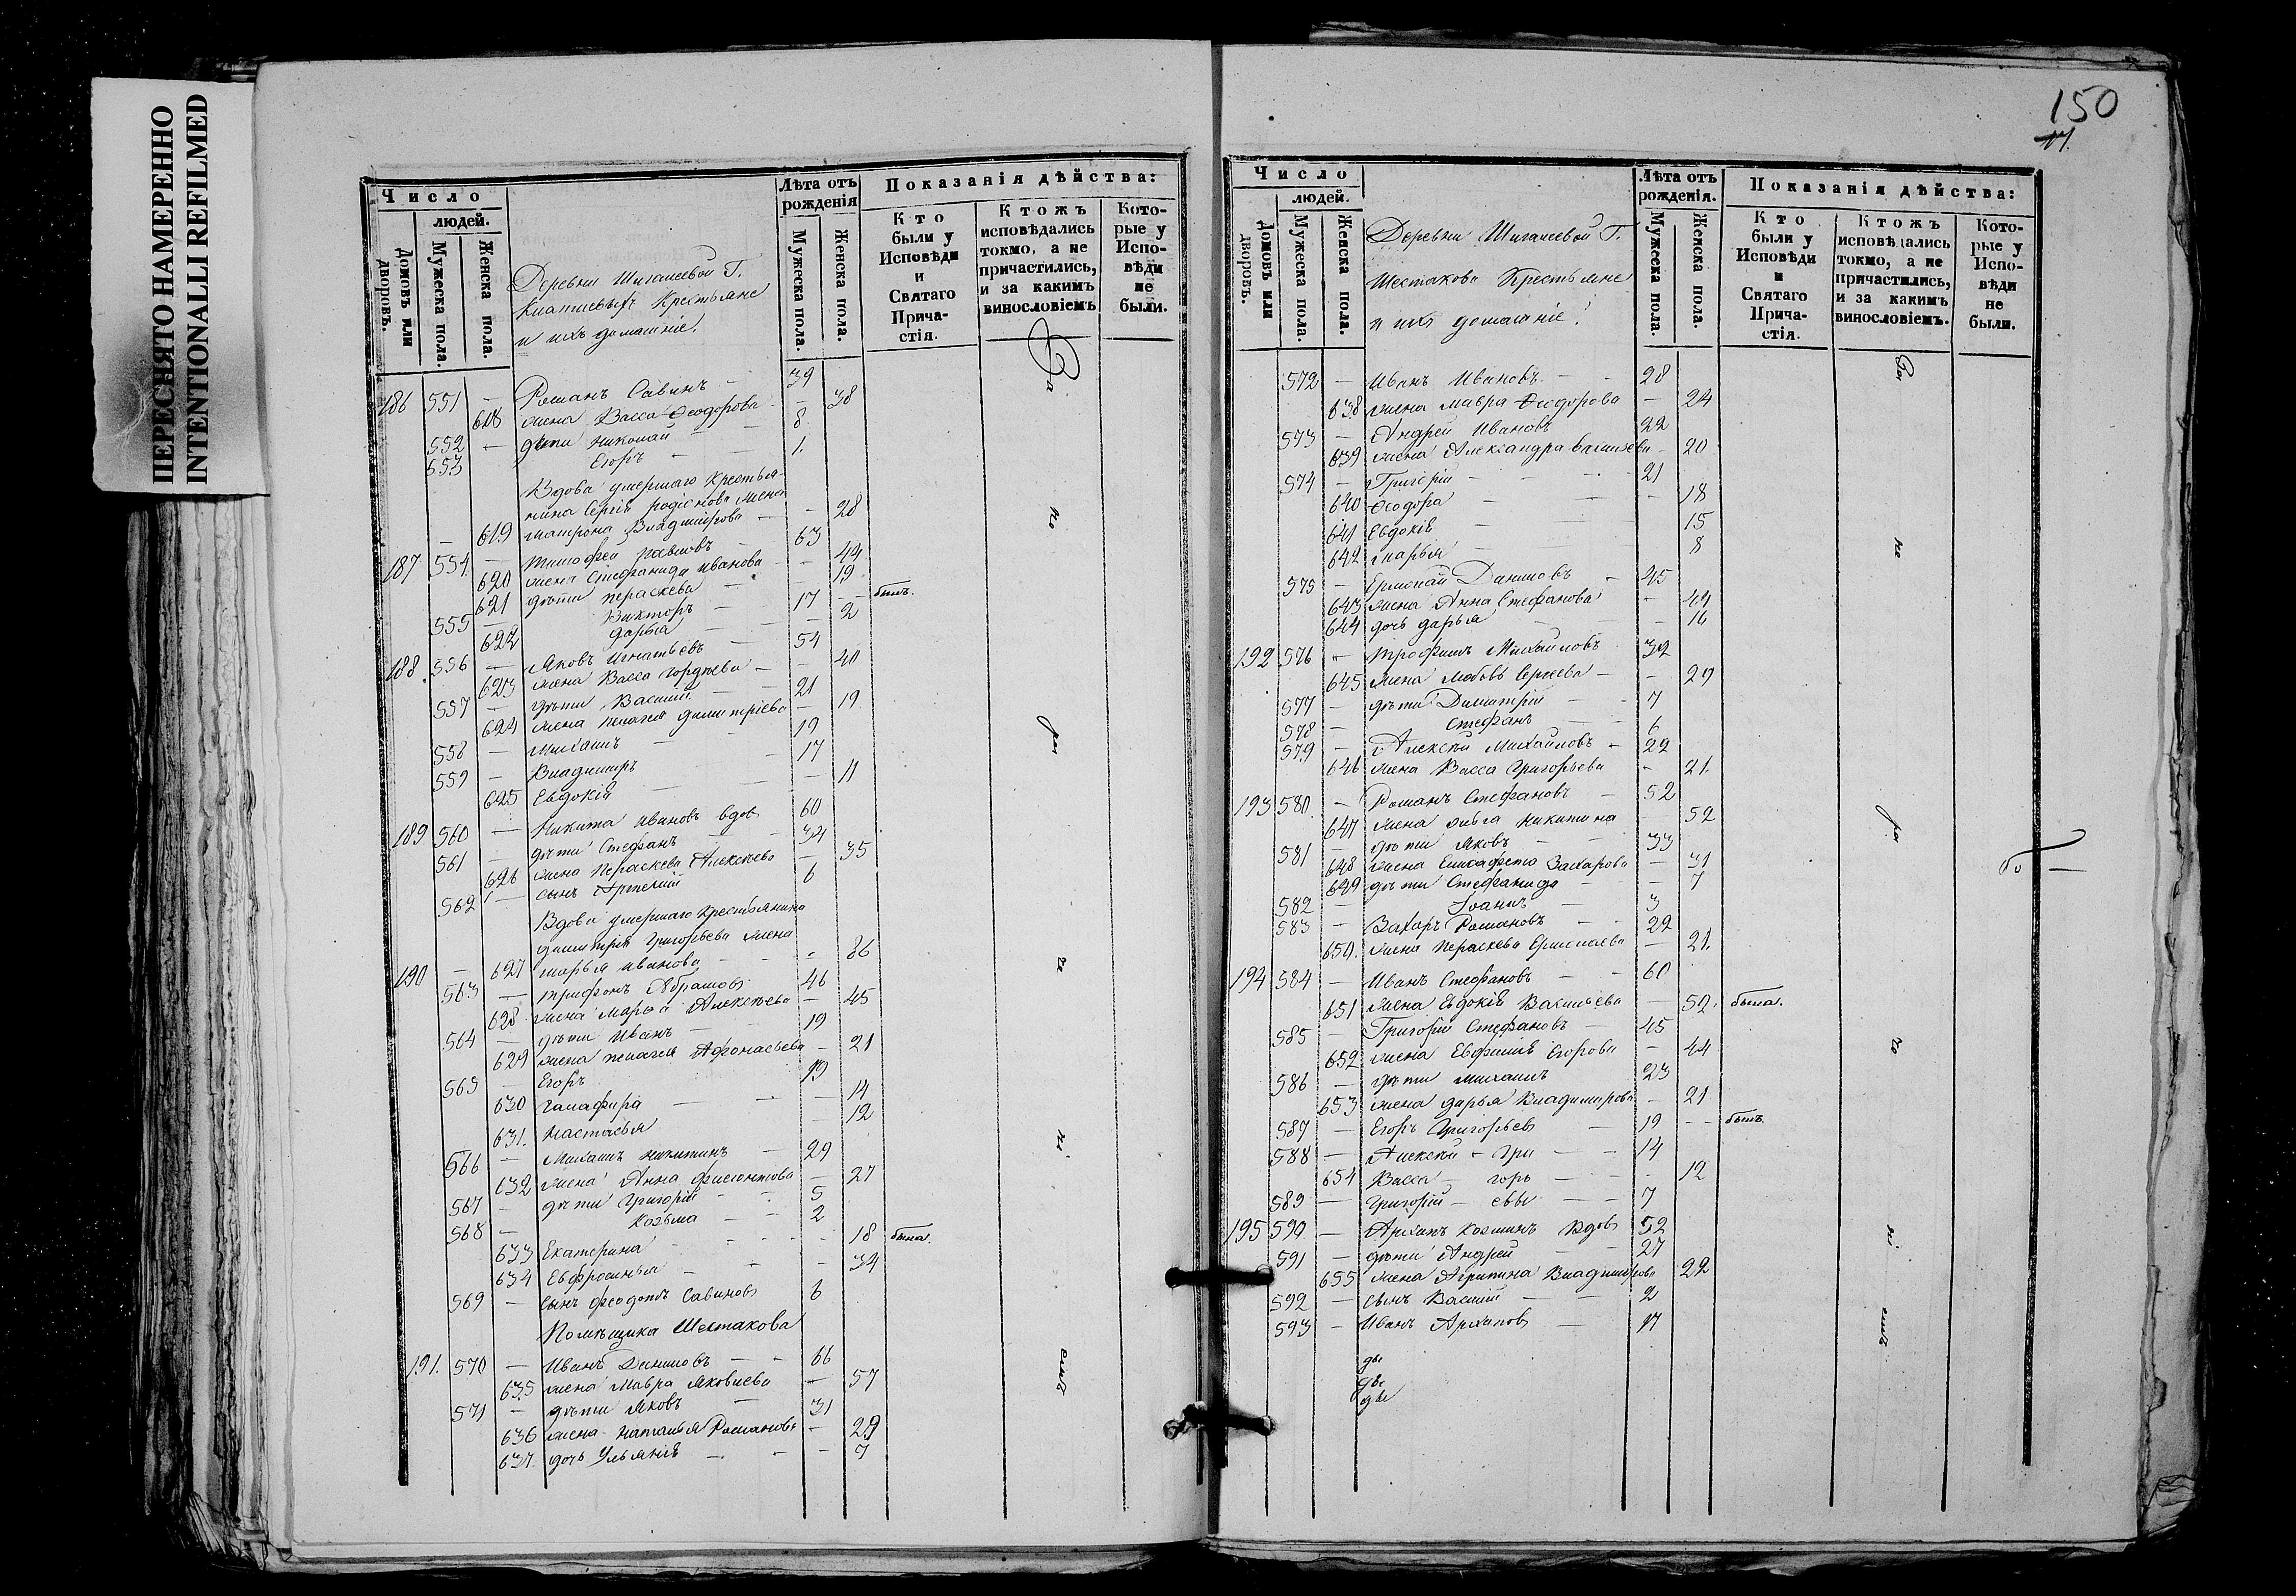 ПЕРЕСНЯТО НАМЕРЕННО
INTENTIONALLI REFILMED
Число
людей.
Домовъ или дворовъ.
Мужеска пола.
Женска пола.
Деревни Шигалеевой Г.
Крестьяне
и ихъ домашніе.
Лѣта отъ рожденія
Мужеска пола.
Женска пола.
Показанія дѣйства:
Кто были у Исповѣди и Святаго Причастія.
Ктожъ исповѣдались токмо, а не причастились, и за какимъ винословіемъ
Которые у Исповѣди не были.
186 551 — Романъ Савинъ — 39
618 жена Васса Ѳеодорова — 38
552 — дѣти Николай 8
553 Егоръ — 1.
Вдова умершаго Крестья-
нина Сергія жена
— 619 матрона Владимірова — — 28
187 554 — Тимофей Павловъ 63
620 жена Стефанида Иванова — 49
621 дѣти Пераскева — 19
555 — Викторъ — 17 — былъ.
622 Дарья — 2
188. 556 — Яковъ Игнатьевъ 54
623 жена Васса Гордѣева — — 40
557 — дѣти Василій 21
624 жена Пелагея Димитріева — 19
558 — Михаилъ 19
559 — Владимиръ 17
625 Евдокія — 11
189 560 — Никита Ивановъ вдов 60
561 — дѣти Стефанъ 34
626 жена Пераскева Алексѣева — 35
562 — сынъ Артемій 6
Вдова умершаго Крестьянина
Димитрія Григорьева жена
190 — 627 марья Иванова — 86
563 — Трифонъ Абрамовъ 46
628 жена Марья Алексѣева — 45
564 — дѣти Иванъ 19
629 жена Пелагея Афонасьева — 21
565 — Егоръ 19
630 Галафира — 14
631. Настасья 12
566 — Михаилъ Никитинъ 29
632 жена Анна — 27
567 — дѣти Григорій 5
568 — Козьма 2
633 Екатерина — 18 была.
634 Евфросинья — 34
569 — сынъ Ѳеодотъ Савиновъ 6
Помѣщика Шестакова
191. 570 — Иванъ Даниловъ — 66
635 жена Мавра Яковлева — 57
571 — дѣти Яковъ 31
636 жена Наталья Романова — 29
637. дочь Ульянія — — 7
150
17.
Число
людей.
Домовъ или дворовъ.
Мужеска пола.
Женска пола.
Деревни Шигалеевой Г.
Шестакова Крестьяне
и ихъ домашніе!
Лѣта отъ рожденія.
Мужеска пола.
Женска пола.
Показанія дѣйства:
Кто были у Исповѣди и Святаго Причастія.
Ктожъ исповѣдались токмо, а не причастились, и за какимъ винословіемъ.
Которые у Исповѣди не были.
572 — Иванъ Ивановъ — 28
638 жена Мавра Ѳеодорова — 24
573 — Андрей Ивановъ 22
639 жена Александра 20
574 — Григорій — 21
640 Ѳеодора — 18
641 Евдокія — 15
642 марья — 8
575 — Ермолай Даниловъ — 45
643 жена Анна Стефанова — 44
644 дочь Дарья — 16
192 576 — Трофимъ Михайловъ 32
645 жена Любовь Сергеева — — 29
577 — дѣти Димитрій — 7
578 — Стефанъ 6
579 — Алексѣй Михайловъ — 22
646 жена Васса Григорьева — 21.
193 580 — Романъ Стефановъ — 52
647 жена Ольга Никитина 52
581 — дѣти Яковъ — 33
648 жена Елисафета Захарова — 31
649 дѣти Стефанида — 7
582 — Іоаннъ — 3
583 — Захаръ Романовъ — 22
650. жена Пераскева Ермолаева — 21.
194 584 — Иванъ Стефановъ — 60
651 жена Евдокія Васильева — 52. была.
585 — Григорій Стефановъ — 45
652 жена Евфимія Егорова — 44
586 — дѣти михаилъ 23
653 жена дарья Владимирова — 21
587 — Егоръ Григорьевъ — 19 — былъ.
588 — Алексѣй — Гри — 14
654 Васса — горь — 12
589 — Григорій — евы — 7
195 590 — Архипъ Козминъ Вдов 52
591 — дѣти Андрей — 27
655 жена Агрипина Владимірова 22
592 — сынъ Василій — 2
593 — Иванъ Архиповъ — 17